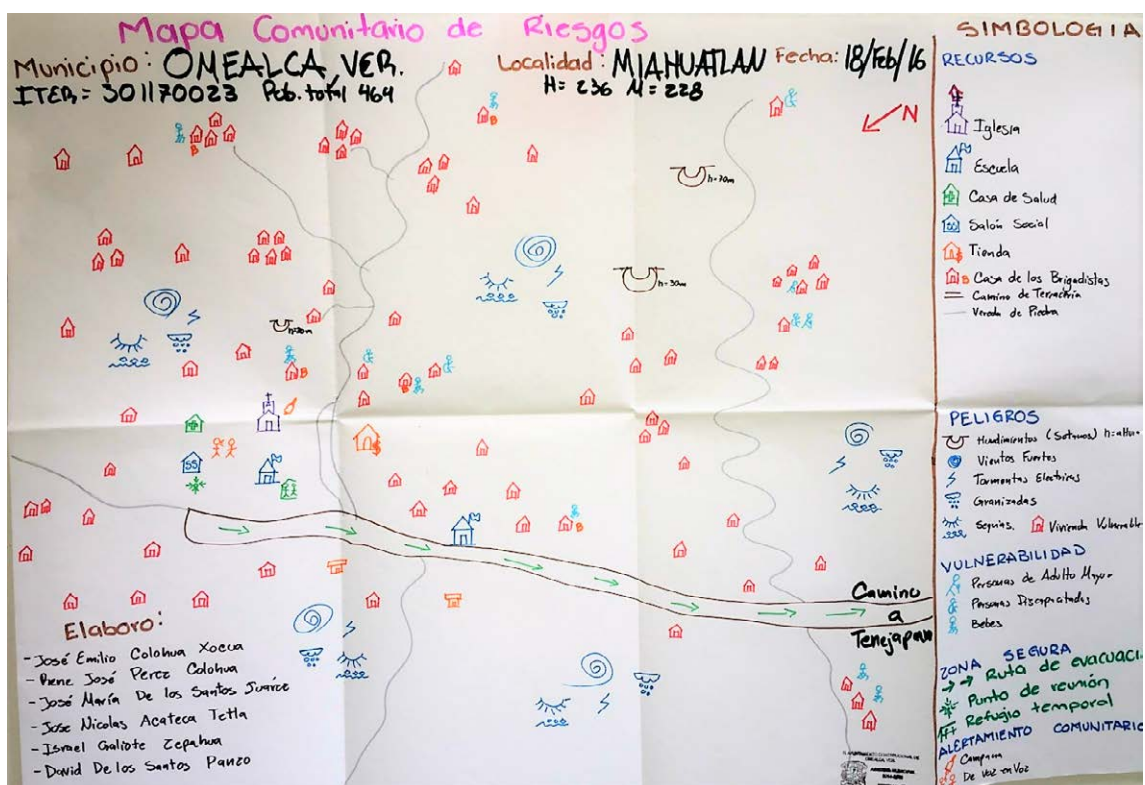 Mapa Comunitario de Riesgos
Municipio: OMEALCA, VER. Localidad: MIAHUATLAN Fecha: 18/Feb/16
ITER= 301170023 Pob. total 464 H= 236 M= 228
N
h=70m
h=30m
h=20m
B
B
B
B
B
Camino
a
Tenejapan
Elaboro:
- José Emilio Colohua Xocua
- Rene José Perez Colohua
- José María De los Santos Juárez
- Jose Nicolas Acateca Tetla
- Israel Galiote Zepahua
- David De los Santos Panzo
SIMBOLOGIA
RECURSOS
Iglesia
Escuela
Casa de Salud
Salón Social
Tienda
B Casa de los Brigadistas
Camino de Terracería
Vereda de Piedra
PELIGROS
Hundimientos (Sotanos) h=altura
Vientos Fuertes
Tormentas Electricas
Granizadas
Sequias. Vivienda Vulnerable
VULNERABILIDAD
Personas de Adulto Mayor
Personas Discapacitadas
Bebes
ZONA SEGURA
Ruta de evacuaci
Punto de reunión
Refugio temporal
ALERTAMIENTO COMUNITARIO
Campana
De Voz en Voz